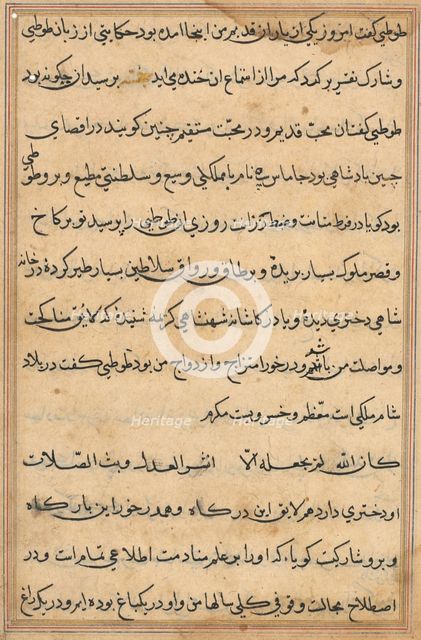 طوطی گفت امروز یکی از یاران قدیم من اینجا آمده بود حکایتی از زبان طوطی
و شارک تقریر کرد که مرا از استماع آن خنده می آید پرسید آن چگونه بود
طوطی گفت آن محب قدیم و در محبت مستقیم چنین گویند در اقصای
چین پادشاهی بود جاماسب نام با مملکتی وسیع و سلطنتی مطیع و برو طوطی
بود گویا در فرط متانت و ضبط روزی از طوطی پرسید تو بر کاخ
و قصر ملوک بسیار پریدهٔ و بر طاق و رواق سلاطین بسیار طیر کردهٔ در خانه
شاهی دختری دیدهٔ و یا در کاشانه شهنشاهی کریمه شنیدهٔ که لایق مناکحت
و مواصلت من باشد و در خور امتزاج و ازدواج من بود طوطی گفت در بلاد
شام ملکی است معظم و خسرویست مکرم
کان الله لم یجعله الا انشر العدل و بث الصلات
او دختری دارد هم لایق این درگاه و هم در خور این بارگاه
و برو شارکیست گویا که او را بر علم منادمت اطلاعی تمام است و در
اصطلاح مجالست وقوفی کلی سالها من و او در یک باغ بوده ایم و در یک راغ
Heritage
Heritage
Heritage
Heritage
Images
Images